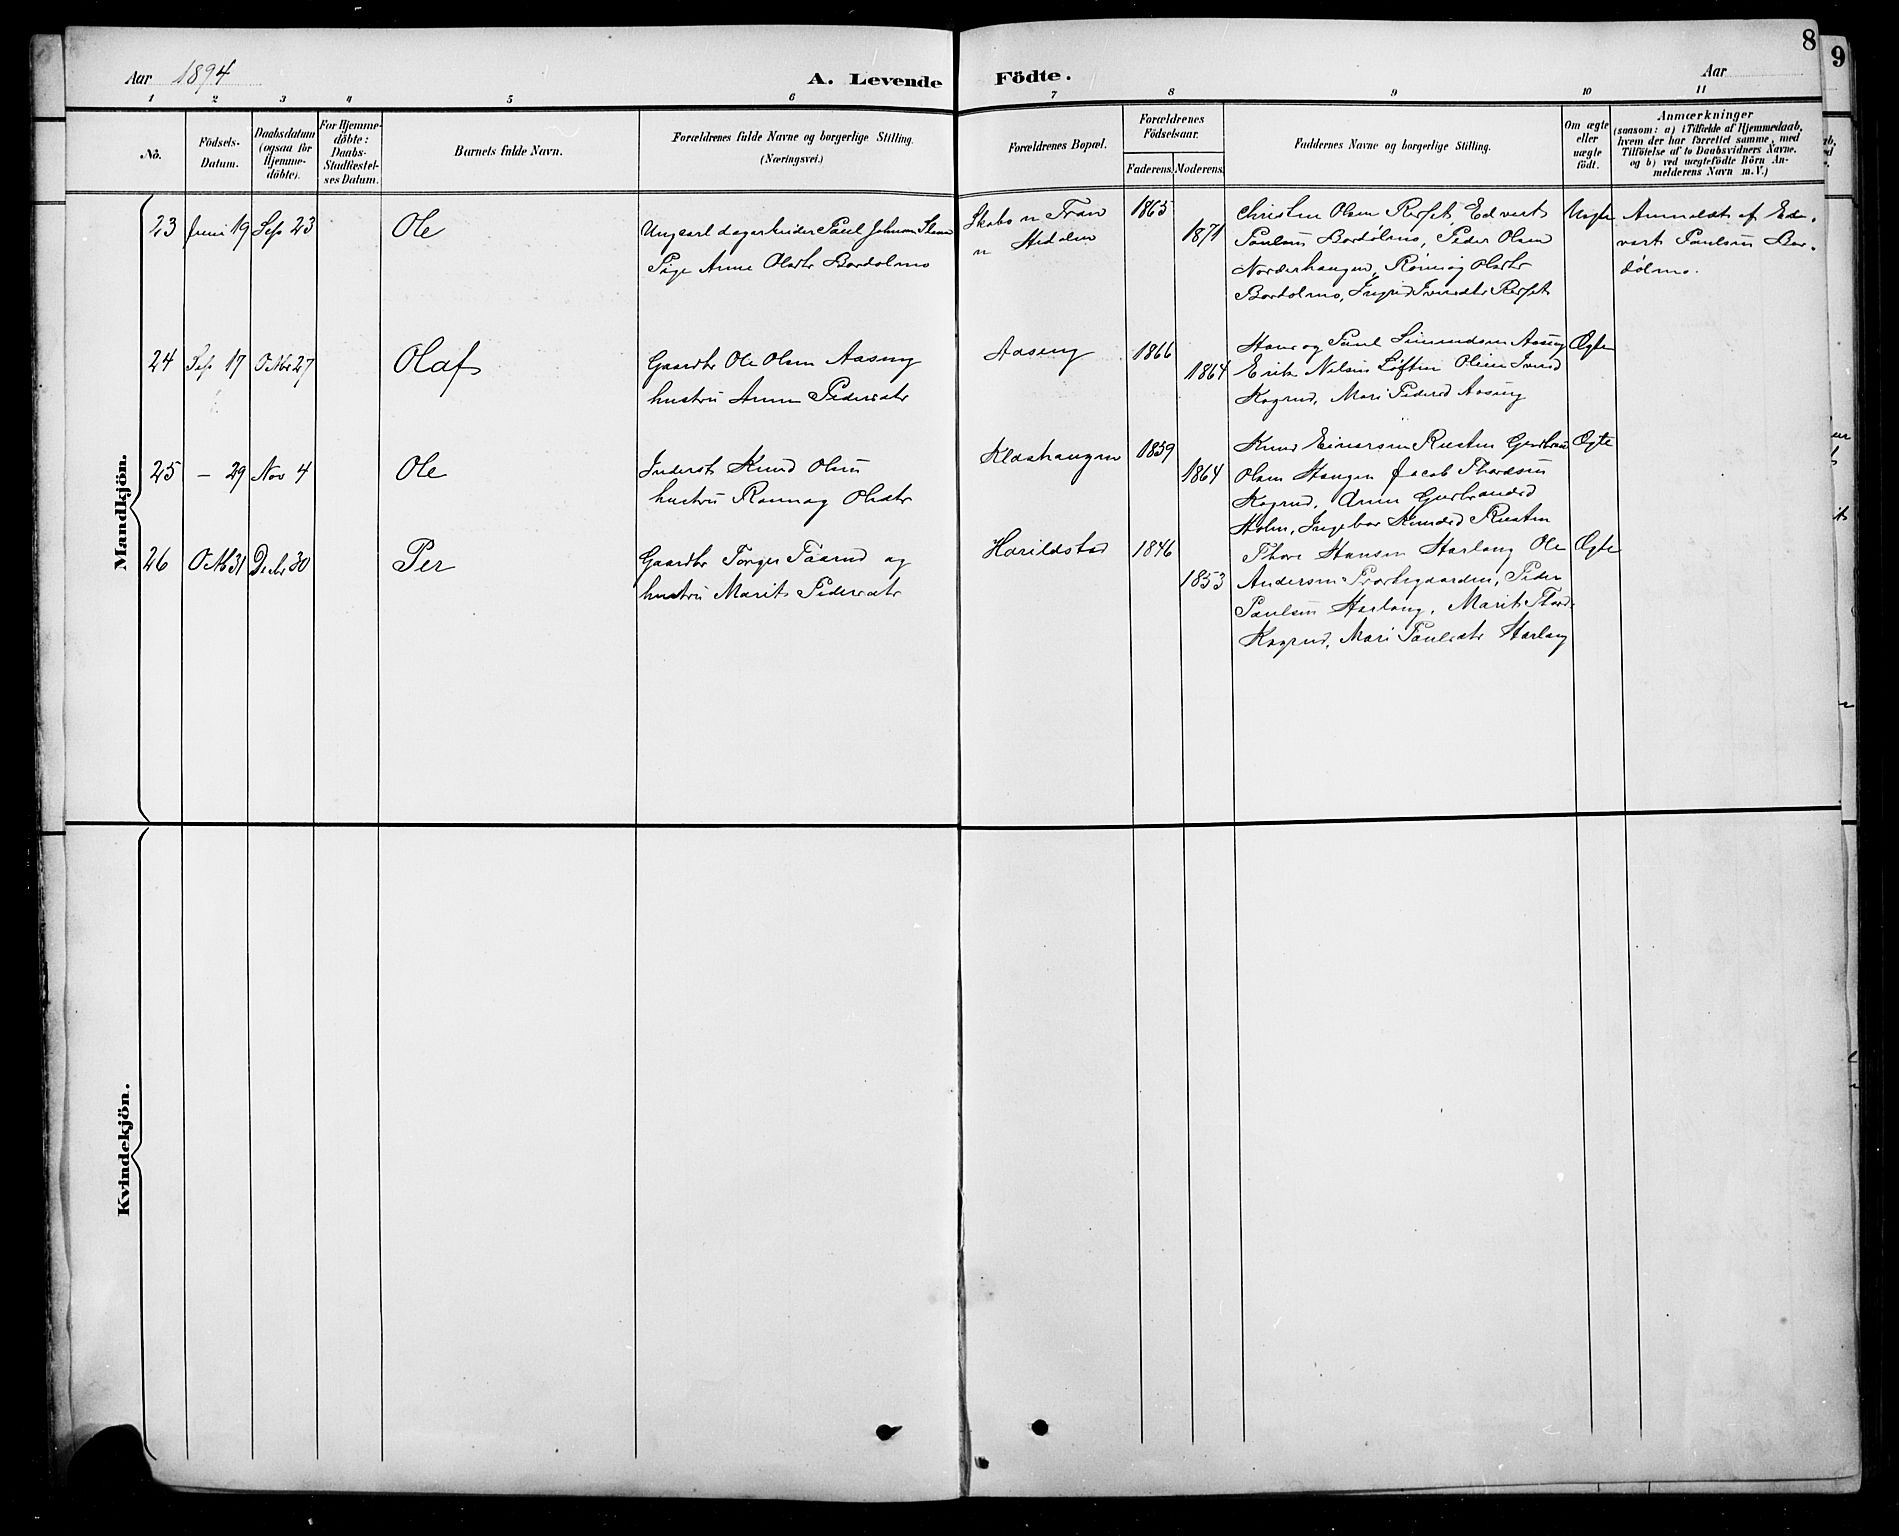 8
9
Aar 1894
A. Levende Födte.
Aar
1 2 3 4 5 6 7 8 9 10 11
No.
Födsels-Datum.
Daabsdatum (ogsaa for Hjemme-döbte).
For Hjemme-döbte: Daabs-Stadfæstel-ses Datum.
Barnets fulde Navn.
Forældrenes fulde Navne og borgerlige Stilling.
(Næringsvei.)
Forældrenes Bopæl.
Forældrenes Födselsaar.
Faderens. Moderens.
Faddernes Navne og borgerlige Stilling.
Om ægte eller uægte født.
Anmærkninger
(saasom: a) i Tilfælde af Hjemmedaab,
hvem der har forrettet samme, med
Tilföielse af to Daabsvidners Navne.
og b) ved uægtefödte Börn An-
melderens Navn m. V.)
Mandkjön.
23 Juni 19 Sep 23 Ole
Ungkarl dagarbeider Paul Johnsen
Pige Anne Olsdtr Bordolmo
Skabo n Fron
n Hedalen
1865
1871
Christen Olsen Edvart
Paulsen Bordølmo, Peder Olsen
Norderhaugen, Rønnog Olsdtr
Bordolmo, Ingrid Iversdtr
Uægte
Anmeldt af Ed-
vart Paulsen Bor-
dølmo.
24 Sep 17 Octbr 27 Olaf
Gaardbr Ole Olsen Aaseng
hustru Anne Pedersdtr
Aaseng
1866
1864
Hans og Paul Simensen Aaseng
Erik Nilsen Løften Oline Iversd
Kogrud, Mari Pedersd Aaseng
Ægte
25 - 29 Nov 4 Ole
Inderst Knud Olsen
hustru Rønnog Olsdtr
Kleivhaugen
1859
1864
Knud Einarsen Rusten Gudbran
Olsen Haugen Jacob Thordsen
Kogrud, Anne Gudbrandsd
Holen, Ingebor Knudsd Rusten
Ægte
26 Octb 31 Decbr 30 Per
Gaardbr Torger Taarud og
hustru Marit Pedersdtr
Harildstad
1846
1853
Thore Hansen Harlaug Ole
Andersen Prestegaarden, Peder
Paulsen Harlaug, Marit Thord-
Kogrud, Mari Paulsdtr Harlaug
Ægte
Kvindekjön.